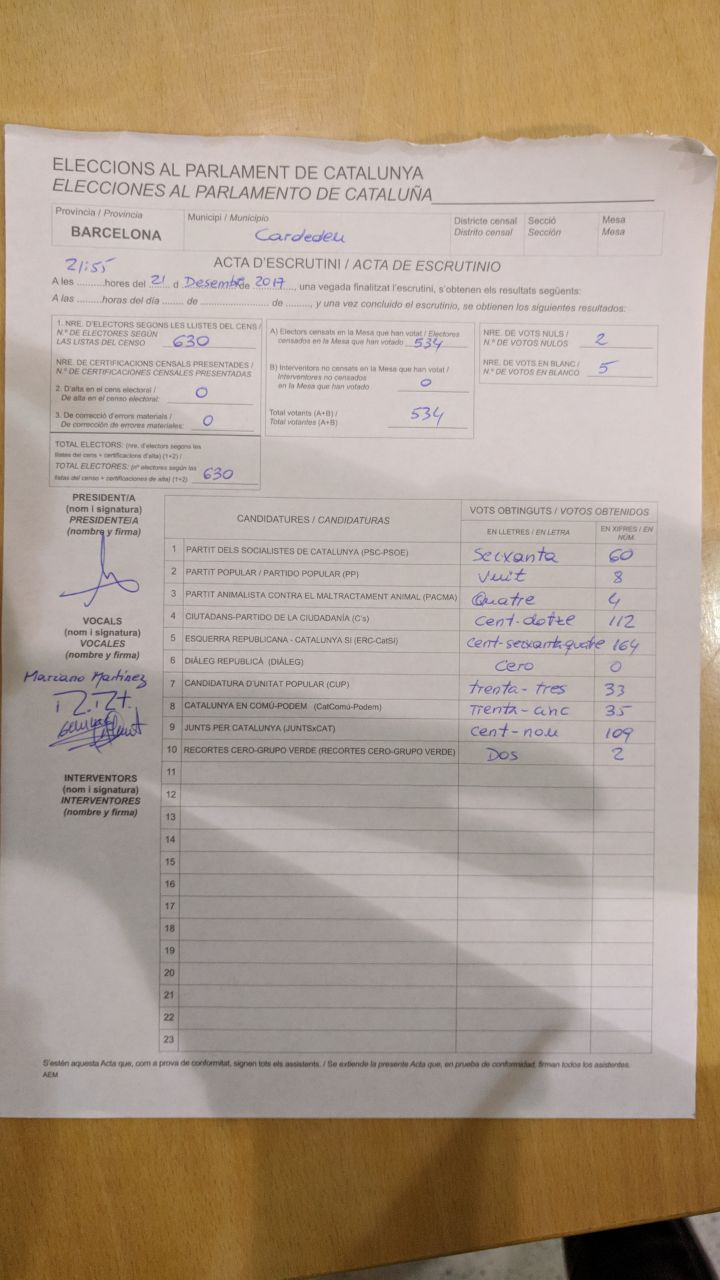 ELECCIONS AL PARLAMENT DE CATALUNYA
ELECCIONES AL PARLAMENTO DE CATALUÑA
Provincia / Provincia
BARCELONA
Municipi / Municipio
Cardedeu
Districte censal
Distrito censal
Secció
Sección
Mesa
Mesa
ACTA D'ESCRUTINI / ACTA DE ESCRUTINIO
21:55
A les .........hores del 21 d Desembre de 2017, una vegada finalitzat l'escrutini, s'obtenen els resultats següents:
A las .........horas del día ....... de .................... de ........, y una vez concluido el escrutinio, se obtienen los siguientes resultados:
1. NRE. D'ELECTORS SEGONS LES LLISTES DEL CENS /
N.º DE ELECTORES SEGÚN
LAS LISTAS DEL CENSO 630
NRE. DE CERTIFICACIONS CENSALS PRESENTADES /
N.º DE CERTIFICACIONES CENSALES PRESENTADAS
2. D'alta en el cens electoral /
De alta en el censo electoral: 0
3. De correcció d'errors materials /
De corrección de errores materiales: 0
TOTAL ELECTORS: (nre. d'electors segons les
llistes del cens + certificacions d'alta) (1+2) /
TOTAL ELECTORES: (nº electores según las
listas del censo + certificaciones de alta) (1+2) 630
A) Electors censats en la Mesa que han votat / Electores
censados en la Mesa que han votado 534
B) Interventors no censats en la Mesa que han votat /
Interventores no censados
en la Mesa que han votado 0
Total votants (A+B) /
Total votantes (A+B) 534
NRE. DE VOTS NULS /
N.º DE VOTOS NULOS 2
NRE. DE VOTS EN BLANC /
N.º DE VOTOS EN BLANCO 5
PRESIDENT/A
(nom i signatura)
PRESIDENTE/A
(nombre y firma)
VOCALS
(nom i signatura)
VOCALES
(nombre y firma)
Marcano Martínez
INTERVENTORS
(nom i signatura)
INTERVENTORES
(nombre y firma)
CANDIDATURES / CANDIDATURAS
VOTS OBTINGUTS / VOTOS OBTENIDOS
EN LLETRES / EN LETRA
EN XIFRES / EN
NÚM.
1 PARTIT DELS SOCIALISTES DE CATALUNYA (PSC-PSOE) Seixanta 60
2 PARTIT POPULAR / PARTIDO POPULAR (PP) Vuit 8
3 PARTIT ANIMALISTA CONTRA EL MALTRACTAMENT ANIMAL (PACMA) Quatre 4
4 CIUTADANS-PARTIDO DE LA CIUDADANÍA (C's) Cent-dotze 112
5 ESQUERRA REPUBLICANA - CATALUNYA SI (ERC-CatSí) Cent-seixanta quatre 164
6 DIÀLEG REPUBLICÀ (DIÀLEG) Cero 0
7 CANDIDATURA D'UNITAT POPULAR (CUP) trenta-tres 33
8 CATALUNYA EN COMÚ-PODEM (CatComú-Podem) Trenta-cinc 35
9 JUNTS PER CATALUNYA (JUNTSxCAT) Cent-nou 109
10 RECORTES CERO-GRUPO VERDE (RECORTES CERO-GRUPO VERDE) Dos 2
11
12
13
14
15
16
17
18
19
20
21
22
23
S'estén aquesta Acta que, com a prova de conformitat, signen tots els assistents. / Se extiende la presente Acta que, en prueba de conformidad, firman todos los asistentes.
AEM